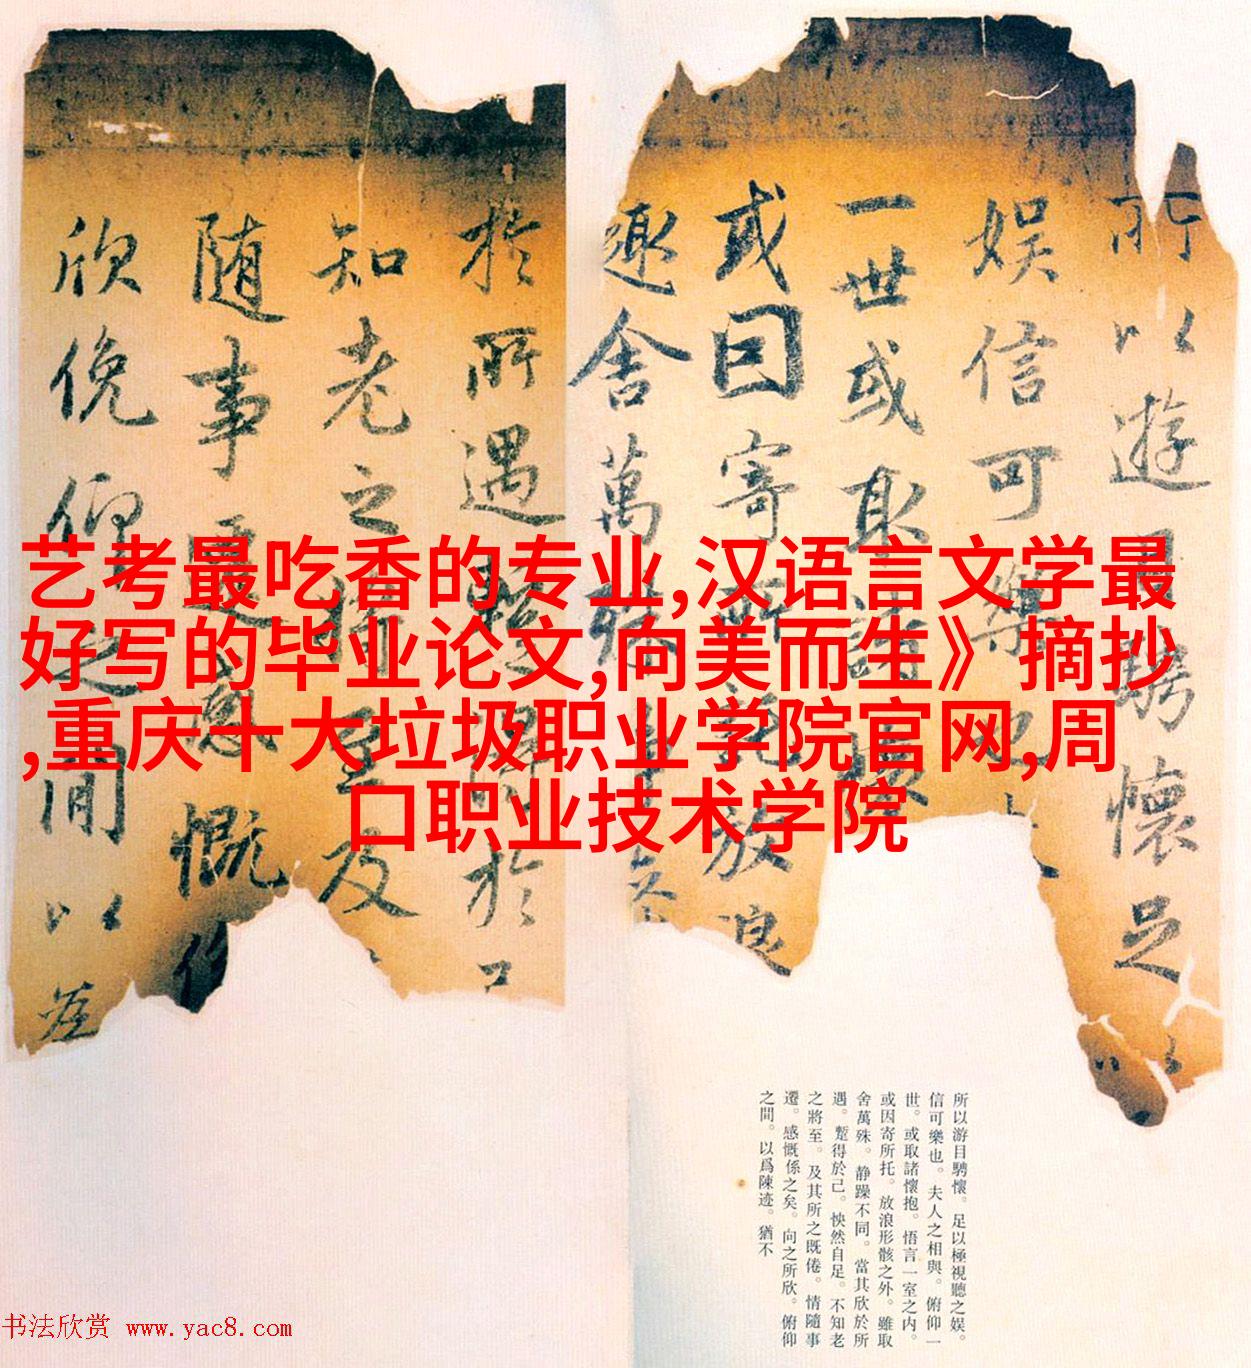 艺考最吃香的专业,汉语言文学最
好写的毕业论文,向美而生》摘抄
,重庆十大垃圾职业学院官网,周
口职业技术学院
所以遊目騁懷足以
娱信可樂也夫
一世或取諸懷
或因寄所託放浪
趣舍萬殊静躁
於所遇暫得於己
知老之将至及
随事遷感慨係
欣俛仰之間以為
所以游目騁懷。足以極視聽之娱。
信可樂也。夫人之相與。俯仰一
世。或取諸懷抱。悟言一室之内。
或因寄所托。放浪形骸之外。雖取
舍萬殊。静躁不同。當其欣於所
遇。蹔得於己。怏然自足。不知老
之將至。及其所之既倦。情隨事
遷。感慨係之矣。向之所欣。俯仰
之間。以爲陳迹。猶不
书法欣赏 www.yac8.com